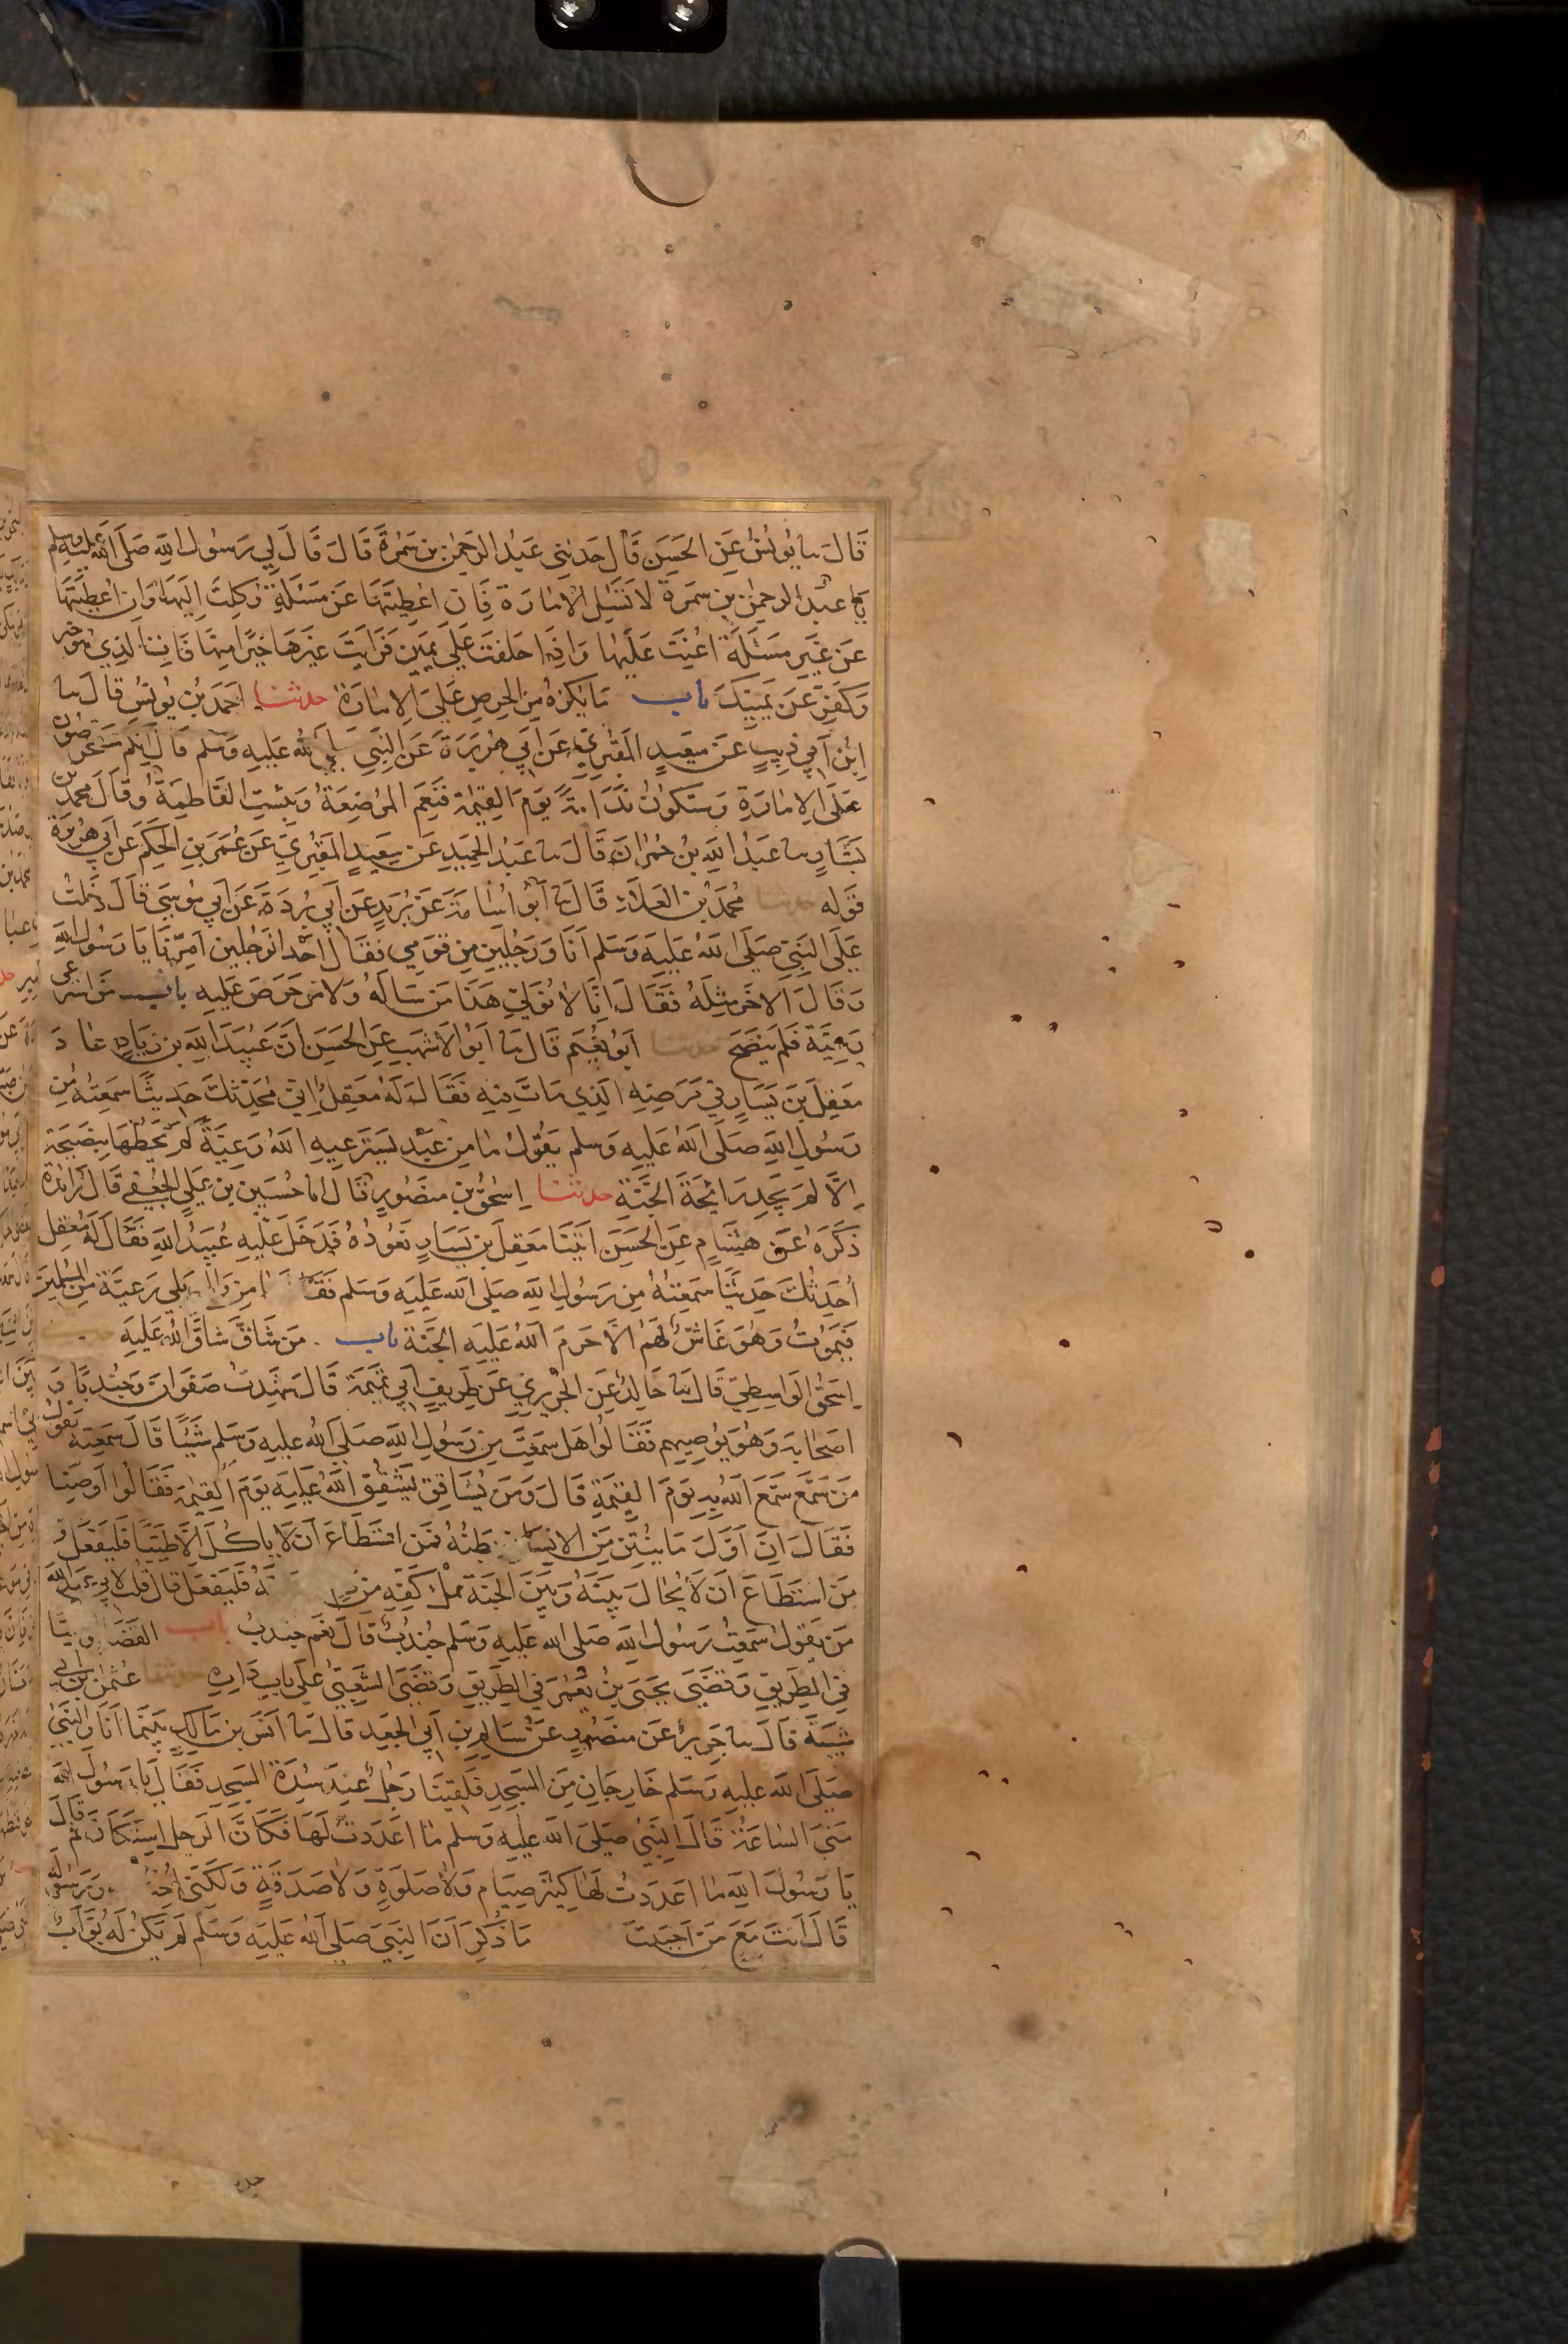 قَالَ نا يُونُسُ عَنِ الحَسَنِ قَالَ حَدثنِي عَبْدُ الرَحمٰنِ بنِ سَمُرَةَ قَالَ قَالَ لِي رَسُولُ اللهِ صَلَى الله عَليهِ وسلم
يا عَبْدَ الرحمٰنِ بنِ سَمُرَةَ لَا تَسْئَلِ الامَارَة فَإِن اعطِيتَهَا عَن مَسْئَلَةٍ وُكِلتَ إِلَيهَا وَإِن اعْطِيتَهَا
عَن غَيرِ مَسئَلَةٍ اُعِنتَ عَلَيهَا وَإِذَا حَلَفتَ عَلَى يَمِينٍ فَرَايتَ غَيرَهَا خَيرًا مِنهَا فَاتِ الذِي هُوَ خير
وَكَفِرْ عَن يَمِينِكَ باب مَا يُكرَهُ مِنَ الحِرصِ عَلَى الإِمَارَةِ حدثنا احمَد بنُ يُونُس قال نا
ابنُ أَبِي ذِيبٍ عَن سعِيدٍ المَقبُرِي عَن أَبِي هُرَيرَةَ عَنِ النَّبِي صَلَى الله عَليهِ وَسَلم قَالَ إِنَّكُم سَتَحرِصُونَ
عَلَى الإِمَارَةِ وَسَتَكُونُ نَدَامَةً يَومَ القِيمَة فَنَعِمَ المُرضِعَةُ وَبِئسَتِ الفَاطِمَةُ وَقَالَ محمد بن
بَشَّارٍ نا عَبدُ اللهِ بنُ حُمرَانَ قَالَ نا عَبدُ الحَمِيدِ عَن سَعِيدٍ المَقبُرِي عَن عُمَرَ بنِ الحَكَمِ عَن أَبِي هُرَيرَة
قَوله حدثنا مُحَمَد بن العَلَاءِ قَالَ نا أَبُو اُسَامَةَ عَن بُرَيدٍ عَن أَبِي بُردَةَ عَن أَبِي مُوسَى قَالَ دَخَلتُ
عَلَى النَبِيّ صَلَى اللهُ عَليهِ وَسَلم أَنَا وَرَجُلَينِ مِن قَومِي فَقَالَ اَحَد الرَجُلين اَمِّرنَا يَا رَسُولَ اللهِ
وَقَالَ الآخَر مِثلَهُ فَقَالَ إِنَّا لا نُوَلِّي هَذَا مَن سَالَهُ وَلا مَن حَرَصَ عَلَيهِ باب مَن استرعي
رَعِيَّةً فَلَم يَنصَح حدثنا أَبُو نُعَيم قَالَ نا أَبُو الأَشهَبِ عَنِ الحَسَن أَنَّ عُبَيدَ اللهِ بن زِيَادٍ عَادَ
مَعقِلَ بنَ يَسَارٍ فِي مَرَضِهِ الَذِي مَاتَ فِيهِ فَقَالَ لَهُ مَعقِلُ إِنِّي مُحَدِّثُكَ حَدِيثًا سَمِعتُهُ مِن
رَسُولِ اللهِ صَلَى اللهُ عَلَيهِ وَسلم يَقُولُ مَا مِن عَبدٍ يَستَرعِيهِ اللهُ رَعِيَّةً لَم يَحُطهَا بِنَصِيحَة
إِلَّا لَم يَجِد رَائِحَةَ الجَنَّةِ حدثنا إِسحقُ بن مَنصُورٍ قَالَ انا حُسَين بن عَلِي الجُعفِي قَالَ زَائِدَة
ذَكَرَهُ عَن هِشَامٍ عَنِ الحَسَنِ أَتَينَا مَعقِلَ بن يَسَارٍ نَعُودُهُ فَدَخَلَ عَلَيهِ عُبَيدُ اللهِ فَقَالَ لَهُ مَعقِل
أُحَدِّثُكَ حَدِيثًا سَمِعتُهُ مِن رَسُولِ اللهِ صَلَى الله عَلَيه وَسَلم فَقَا مَا مِن وَالٍ يَلِي رَعِيَّة مِنَ المسلِمِين
فَيَمُوتُ وَهُوَ غَاشٌّ لَهُم اِلَّا حَرَمَ اللهُ عَلَيهِ الجَنَّةَ باب مَن شَاقَّ شَاقَّ اللهُ عَلَيهِ
إِسحقُ الوَاسِطِي قَالَ نا خَالِدٌ عَنِ الجُرَيرِي عَن طَرِيفٍ أَبِي تَمِيمَة قَالَ شَهِدتُ صَفوَانَ وَجُندبًا وَ
اصحَابَه وَهُوَ يُوصِيهِم فَقَالُوا هَل سَمِعتَ مِن رَسُولِ اللهِ صَلَى اللهُ عَليهِ وَسَلم شَيئًا قَالَ سَمِعتُهُ يَقُولُ
مَن سَمَّعَ سَمَّعَ اللهُ بِهِ يَومَ القِيمَةِ قَالَ وَمَن يُشَاقِق يَشقُقِ اللهُ عَلَيهِ يَومَ القِيمَة فَقَالُوا أَوصِنَا
فَقَالَ إِنَّ أَوَّلَ مَا يُنتِنُ مِنَ الاِنسَان بَطنُهُ فَمَنِ استَطَاعَ أَن لَا يَاكُلَ إِلَّا طَيِّبًا فَليَفعَل وَ
مَنِ استَطَاعَ أَن لَا يُحَالَ بَينَهُ وَبَينَ الجَنَّة مِلءُ كَفِّهِ مِن فَليَفعَل قَالَ قُلت لِأَبِي عَبد الله
مَن يَقُولُ سَمِعتُ رَسُولَ اللهِ صَلى الله عَلَيهِ وَسَلم جُندُبٌ قَالَ نَعَم جُندبُ باب القَضَا وَ
فِي الطَرِيقِ وَقَضَى يَحيَى بنُ يَعمُرَ فِي الطَرِيقِ وَقَضَى الشَعبِي عَلَى بَابِ دَارِه حدثنا عُثمٰن بن ابي
شَيبَةَ قَالَ نا جَرِيرٌ عَن مَنصُورٍ عَن سَالِمِ بنِ أَبِي الجَعد قَالَ نا أَنَس بن مَالِكٍ بَينَمَا أَنَا وَالنَبِيُّ
صَلَى الله عَليهِ وَسَلم خَارِجَانِ مِنَ المَسجِدِ فَلَقِيَنَا رَجُلٌ عِندَ سُدَّةِ المَسجِد فَقَالَ يَا رَسُولَ الله
مَتَى السَاعَةُ قَالَ النَبِيُّ صَلَى الله عَليهِ وَسَلم مَا اعدَدتَ لَهَا فَكَانَّ الرَجل استَكَانَ ثُم قَالَ
يَا رَسُولَ اللهِ مَا اعدَدتُ لَهَا كَبِيرَ صِيَامٍ وَلَا صَلوةٍ وَلَا صَدَقَةٍ وَلَكِنِّي أُحِبُّ وَرَسُولَهُ
قَالَ أَنتَ مَعَ مَن أَحبَبتَ مَا ذُكِرَ أَنَّ النَبِيَ صَلَى اللهُ عَلَيهِ وَسَلم لَم يَكُن لَه بَوَّابٌ